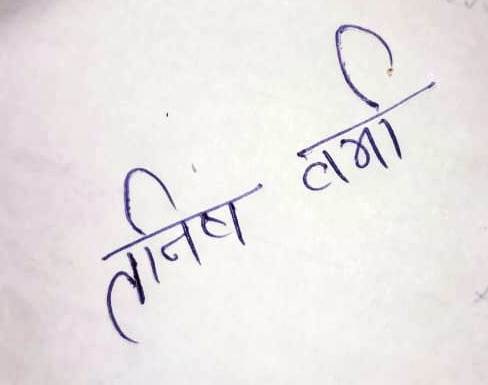 तनिष वर्मा